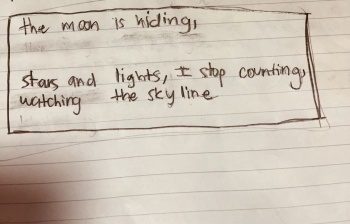 the moon is hiding,
stars and lights, I stop counting,
watching the skyline